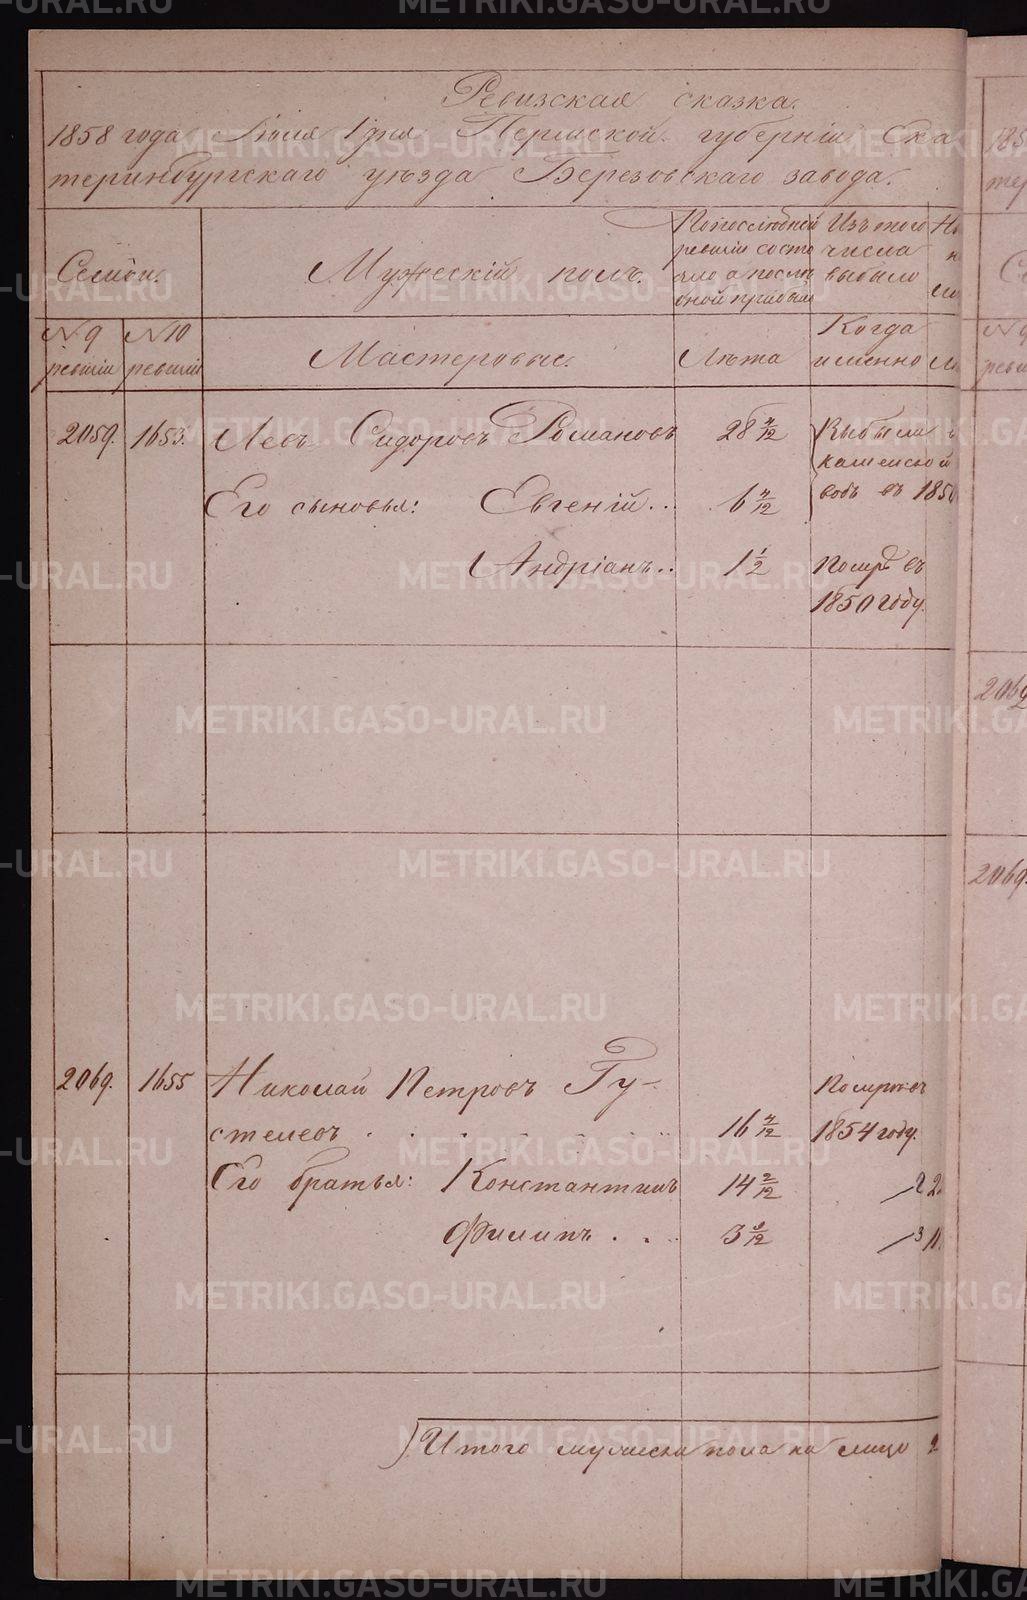 Ревизская сказка.
1858 года Июля 1 дня Пермской губерніи Ека
теринбургскаго уѣзда Березовскаго завода.
Семьи.
Мужескій полъ.
По послѣдней
ревизіи состо
яло а послѣ
оной прибыло
Изъ того
числа
выбыло
№ 9
ревизіи
№ 10
ревизіи
Мастеровые.
Лѣта
Когда
именно
2059. 1653. Левъ Сидоровъ Романовъ 28 4/12 Выбыли
Каменской
Его сыновья: Евгеній.. 6 4/12 водъ въ 185
Андріанъ.. 1 1/2 Помръ въ
1850 году.
2069. 1655 Николай Петровъ Гу-
стелевъ 16 4/12 Померъ въ
1854 году.
Его братья: Константинъ 14 2/12 2
Филипъ . . 3 /12 11.
Итого мужеска пола на лицо 2
185
тер
№ 9
ревиз
2069.
METRIKI.GASO-URAL.RU